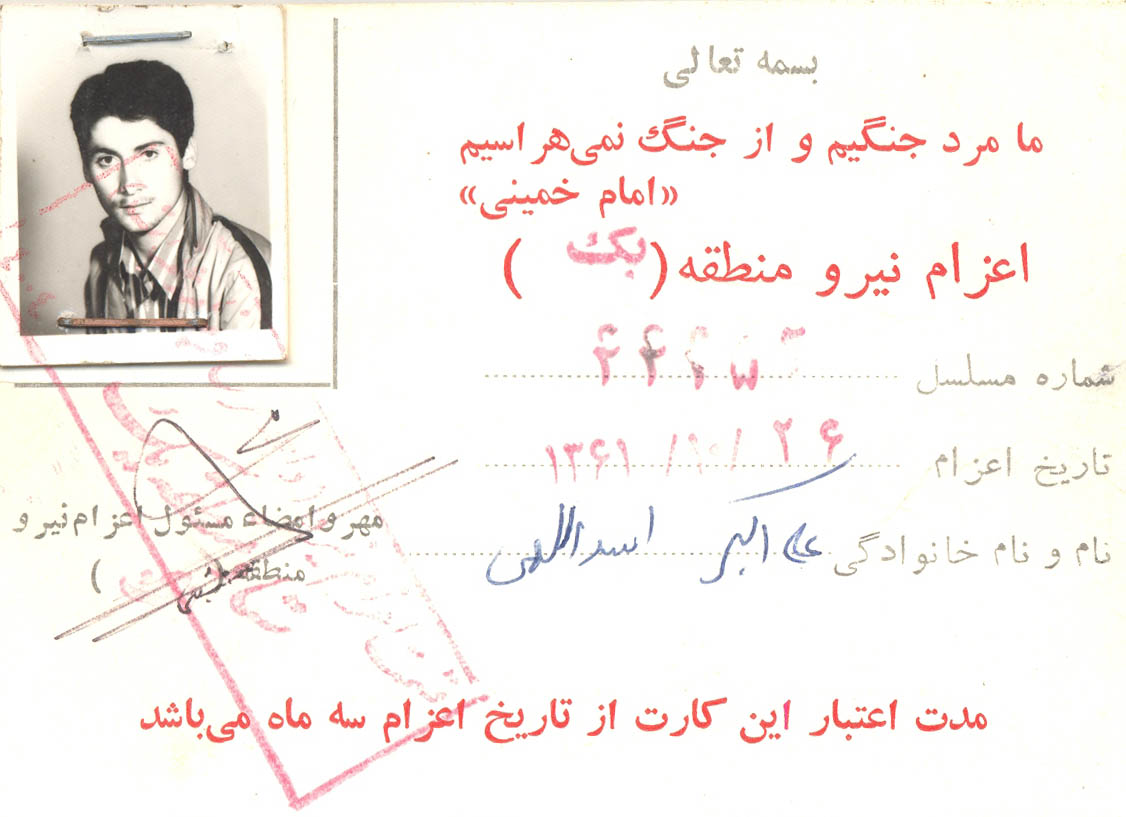 بسمه تعالی
ما مرد جنگیم و از جنگ نمی‌هراسیم
«امام خمینی»
اعزام نیرو منطقه (یک)
شماره مسلسل
تاریخ اعزام ۱۳۶۱/۱۰/۲۶
نام و نام خانوادگی علی اکبر اسداللهی
مهر و امضاء مسئول اعزام نیرو
منطقه ( )
مدت اعتبار این کارت از تاریخ اعزام سه ماه می‌باشد